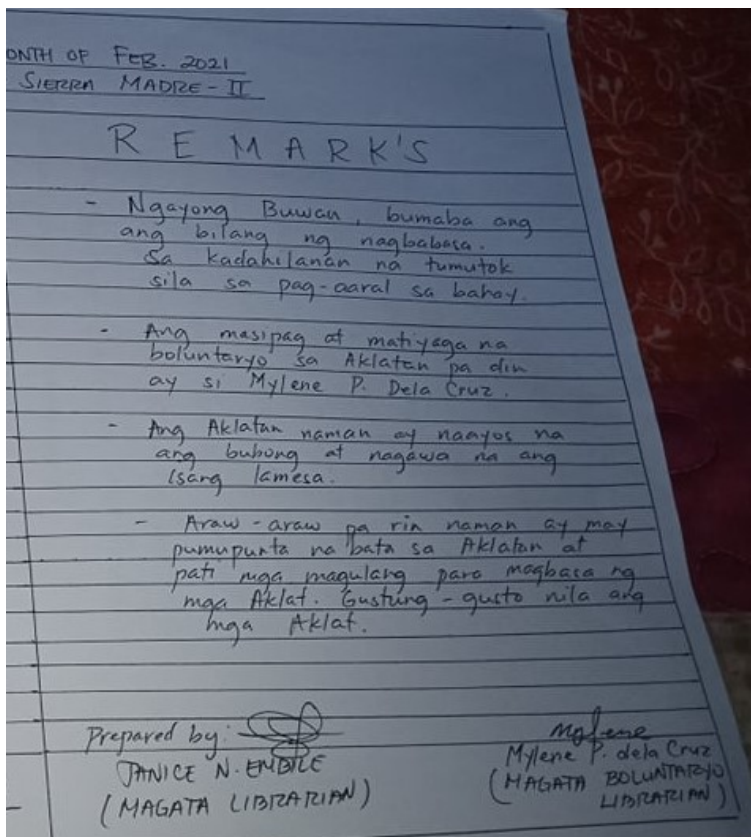 ONTH OF FEB. 2021
SIERRA MADRE - II
REMARK'S
- Ngayong Buwan, bumaba ang
ang bilang ng nagbabasa.
Sa kadahilanan na tumutok
sila sa pag-aaral sa bahay.
- Ang masipag at matiyaga na
boluntaryo sa Aklatan pa din
ay si Mylene P. Dela Cruz.
- Ang Aklatan naman ay naayos na
ang bubong at nagawa na ang
isang lamesa.
- Araw-araw pa rin naman ay may
pumupunta na bata sa Aklatan at
pati mga magulang para magbasa ng
mga Aklat. Gustung-gusto nila ang
mga Aklat.
Prepared by:
JANICE N. EMBILE
(MAGATA LIBRARIAN)
Mylene
Mylene P. dela Cruz
(MAGATA BOLUNTARYO
LIBRARIAN)